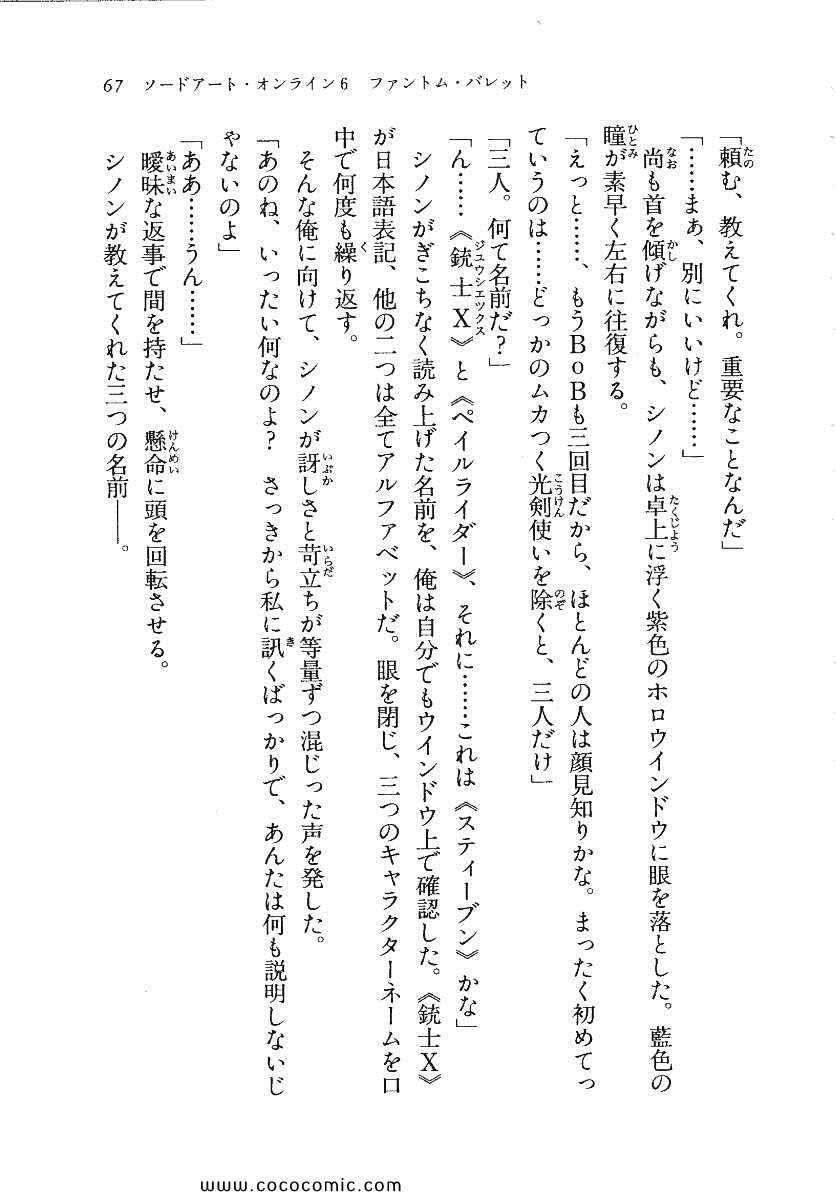 67 ソードアート・オンライン6 ファントム・バレット
「頼む、教えてくれ。重要なことなんだ」
「……まぁ、別にいいけど……」
尚も首を傾げながらも、シノンは卓上に浮く紫色のホロウインドウに眼を落とした。藍色の
瞳が素早く左右に往復する。
「えっと……、もうBoBも三回目だから、ほとんどの人は顔見知りかな。まったく初めてっ
ていうのは……どっかのムカつく光剣使いを除くと、三人だけ」
「三人。何て名前だ?」
「ん……《銃士X》と《ペイルライダー》、それに……これは《スティーブン》かな」
シノンがぎこちなく読み上げた名前を、俺は自分でもウインドウ上で確認した。《銃士X》
が日本語表記、他の二つは全てアルファベットだ。眼を閉じ、三つのキャラクターネームを口
中で何度も繰り返す。
そんな俺に向けて、シノンが訝しさと苛立ちが等量ずつ混じった声を発した。
「あのね、いったい何なのよ? さっきから私に訊くばっかりで、あんたは何も説明しないじ
ゃないのよ」
「ああ……うん……」
曖昧な返事で間を持たせ、懸命に頭を回転させる。
シノンが教えてくれた三つの名前――。
www.cococomic.com